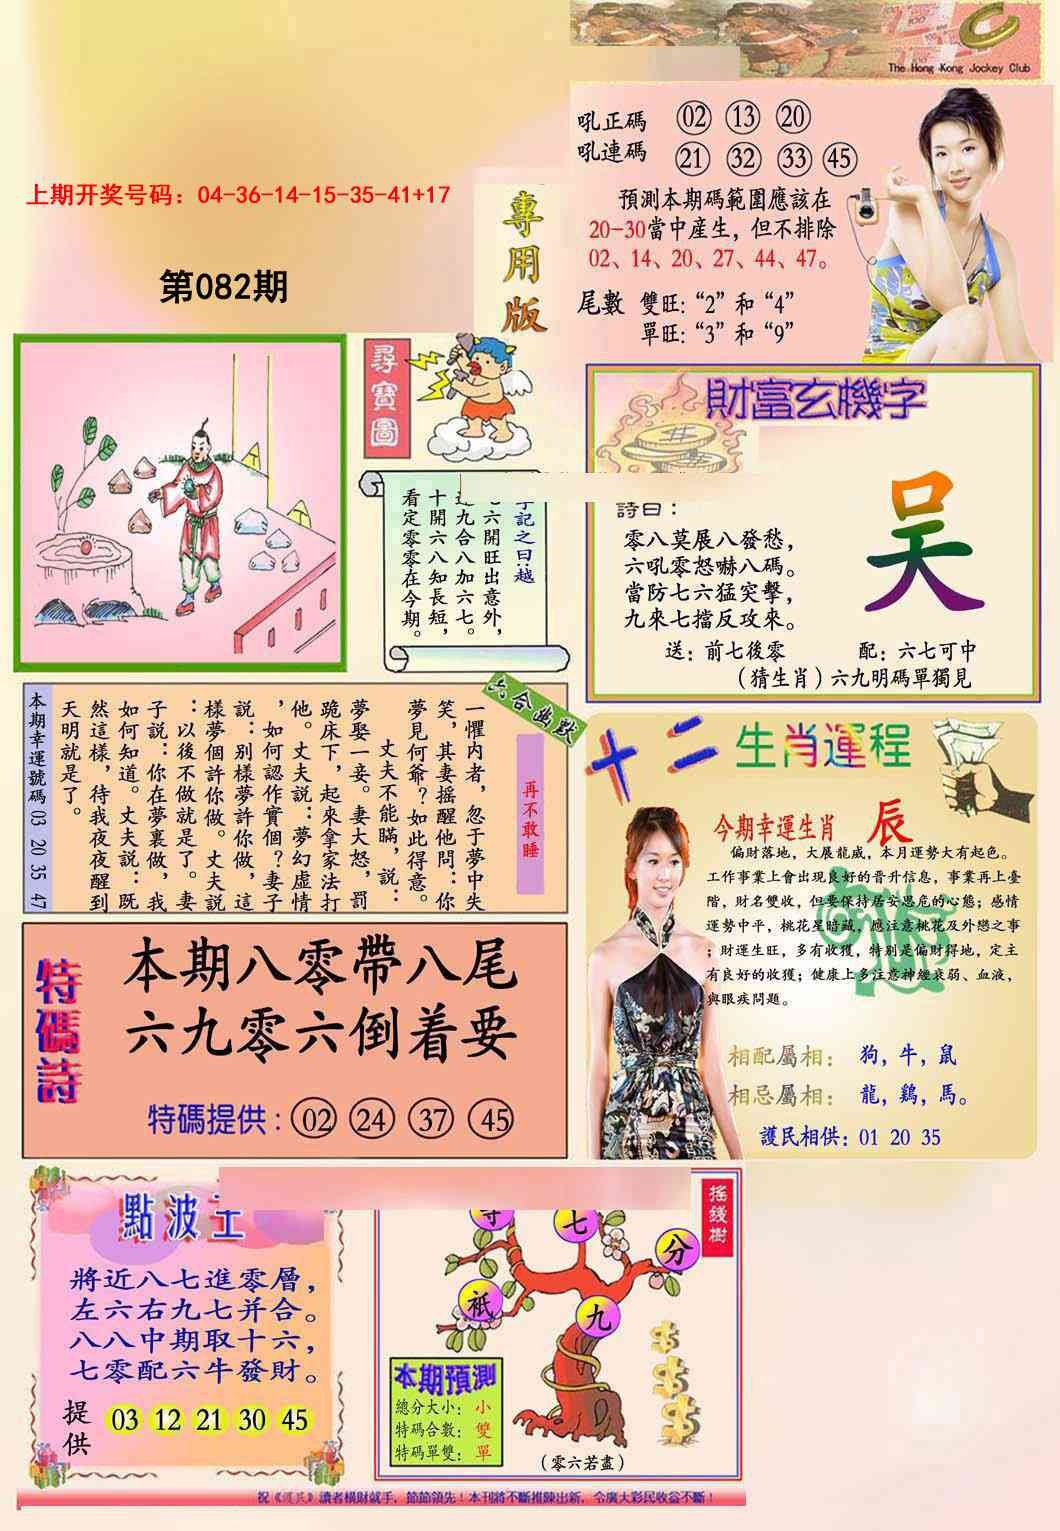 The Hong Kong Jockey Club
吼正碼 02 13 20
吼連碼 21 32 33 45
預測本期碼範圍應該在
20-30當中産生，但不排除
02、14、20、27、44、47。
尾數 雙旺:“2”和“4”
單旺:“3”和“9”
上期开奖号码：04-36-14-15-35-41+17
第082期
專用版
尋寶圖
字記之曰:越
七六開旺出意外，
九合八加六七。
十開六八知長短，
看定零零在今期。
財富玄機字
詩曰：
零八莫展八發愁，
六吼零怒嚇八碼。
當防七六猛突擊，
九來七擋反攻來。
吴
送：前七後零 配：六七可中
（猜生肖）六九明碼單獨見
六合幽默
再不敢睡
一懼内者，忽于夢中失
笑，其妻摇醒他問：你
夢見何爺？如此得意。
丈夫不能瞞，説：
夢娶一妾。妻大怒，罰
跪床下，起來拿家法打
他。丈夫説：夢幻虚情
，如何認作實個？妻子
説：别樣夢許你做，這
樣夢個許你做。丈夫説
：以後不做就是了。妻
子説：你在夢裏做，我
如何知道。丈夫説：既
然這樣，待我夜夜醒到
天明就是了。
本期幸運號碼 03 20 35 47
十二生肖運程
今期幸運生肖 辰
偏財落地，大展龍威，本月運勢大有起色。
工作事業上會出現良好的晉升信息，事業再上臺
階，財名雙收，但要保持居安思危的心態；感情
運勢中平，桃花星暗藏，應注意桃花及外戀之事
；財運生旺，多有收獲，特别是偏財得地，定主
有良好的收獲；健康上多注意神經衰弱、血液，
與眼疾問題。
相配屬相： 狗，牛，鼠
相忌屬相： 龍，鷄，馬。
護民相供：01 20 35
特碼詩
本期八零帶八尾
六九零六倒着要
特碼提供：02 24 37 45
點波王
將近八七進零層，
左六右九七并合。
八八中期取十六，
七零配六牛發財。
提供 03 12 21 30 45
搖錢樹
七
分
八
祇
九
本期預測
總分大小：小
特碼合數：雙
特碼單雙：單
（零六若盡）
祝《護民》讀者橫財就手，節節領先！本刊將不斷推陳出新，令廣大彩民收益不斷！